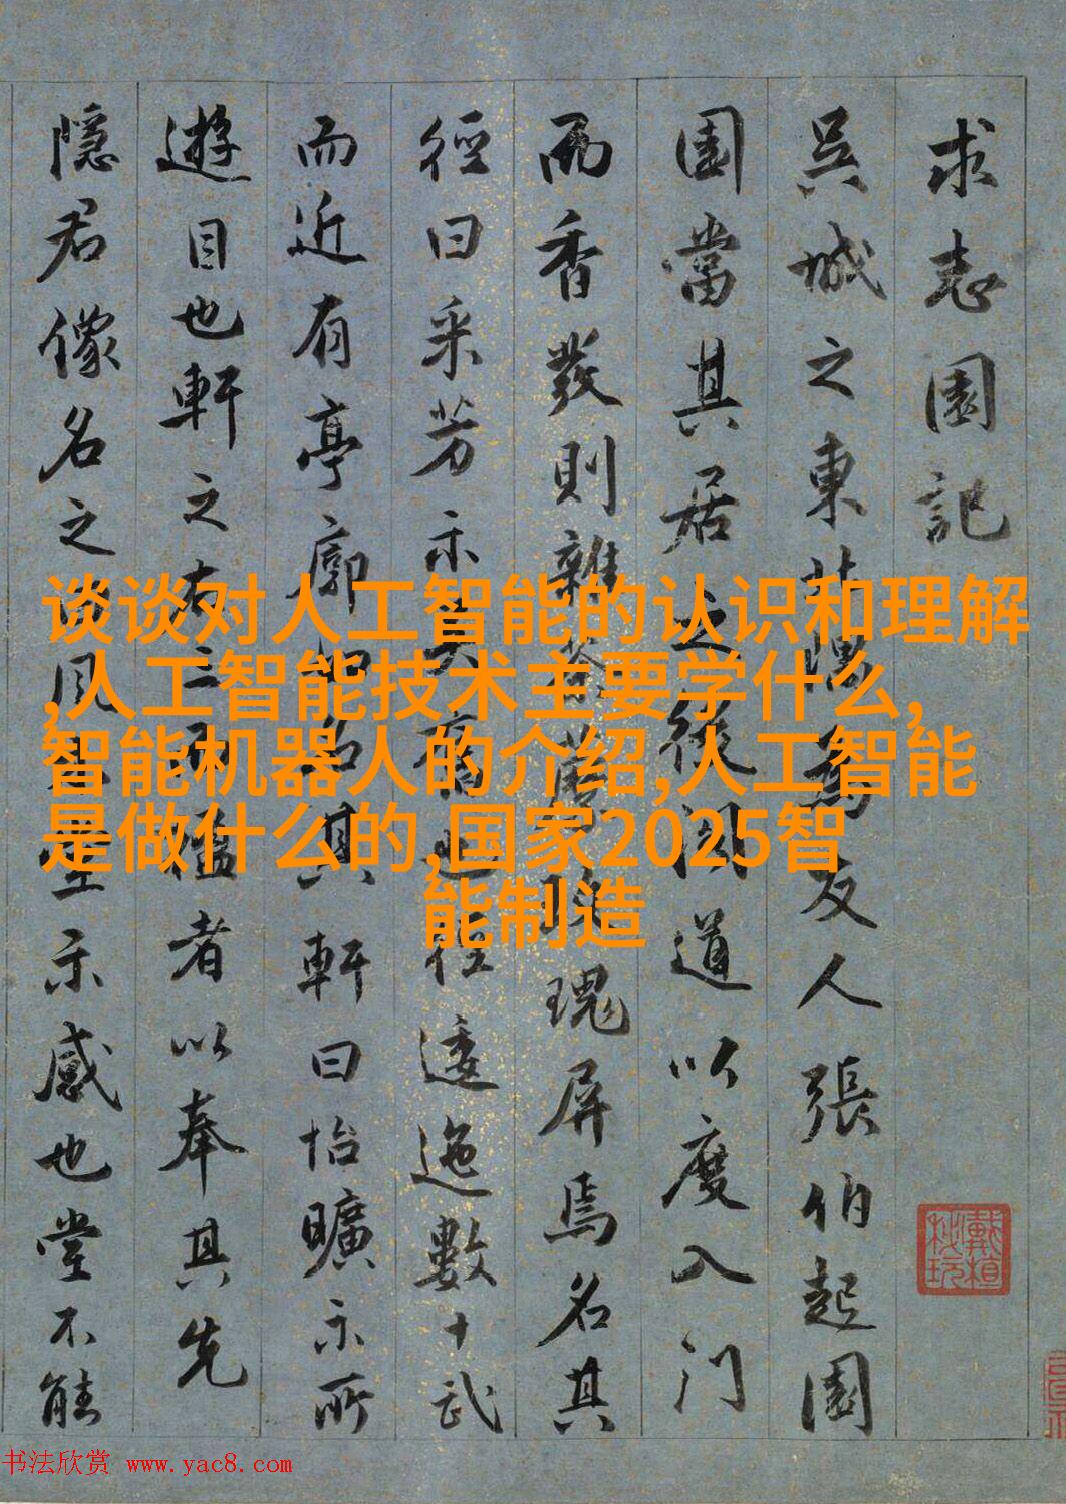 求志園記
吳城之東北隅為友人張伯起園
園當其居之後閈道以度入門
而香發則雜荼蘼玫瑰屏焉名其
徑曰采芳示也徑逶迤數十武
而近有亭廓如名其軒曰怡曠示所
遊目也軒之右三楹者以奉其先
隱君像名之曰風木堂示感也堂不能
谈谈对人工智能的认识和理解
,人工智能技术主要学什么,
智能机器人的介绍,人工智能
是做什么的,国家2025智
能制造
戴植
秘玩
书法欣赏 www.yac8.com